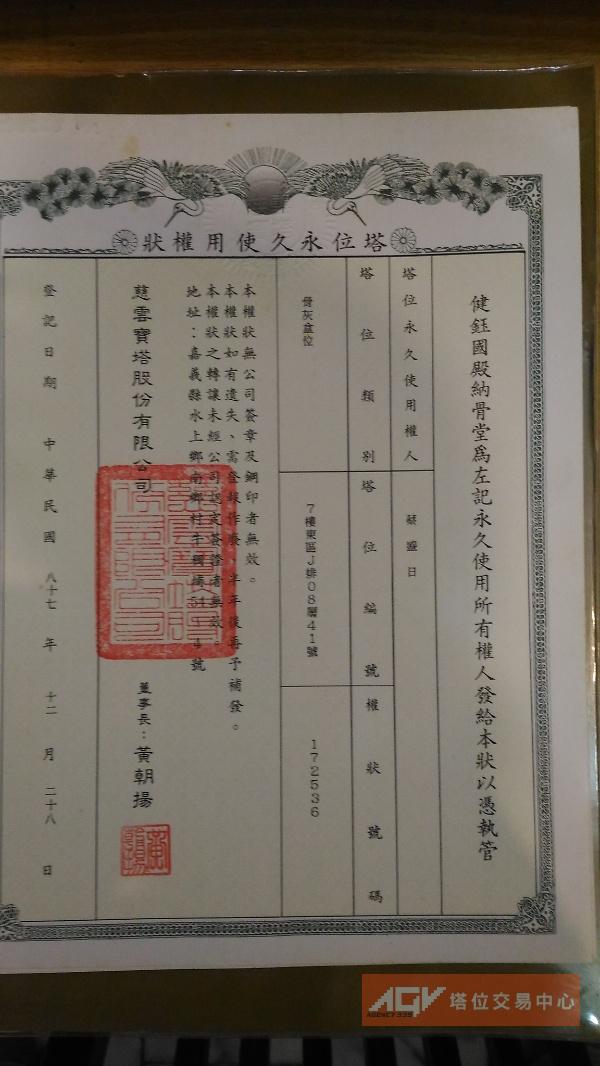 塔位永久使用權狀
健鈺國殿納骨堂為左記永久使用所有權人發給本狀以憑執管
塔位永久使用權人
蔡盛日
塔位類別
塔位編號
權狀號碼
骨灰盒位
7樓東區J排08層41號
172536
本權狀無公司簽章及鋼印者無效。
本權狀如有遺失、需登報作廢，半年後再予補發。
本權狀之轉讓未經公司認定簽證者無效。
地址：嘉義縣水上鄉南鄉村牛稠埔51-4號
慈雲寶塔股份有限公司
董事長：黃朝揚
登記日期 中華民國 八十七 年 十二 月 二十八 日
AGV 塔位交易中心
AGENCY999